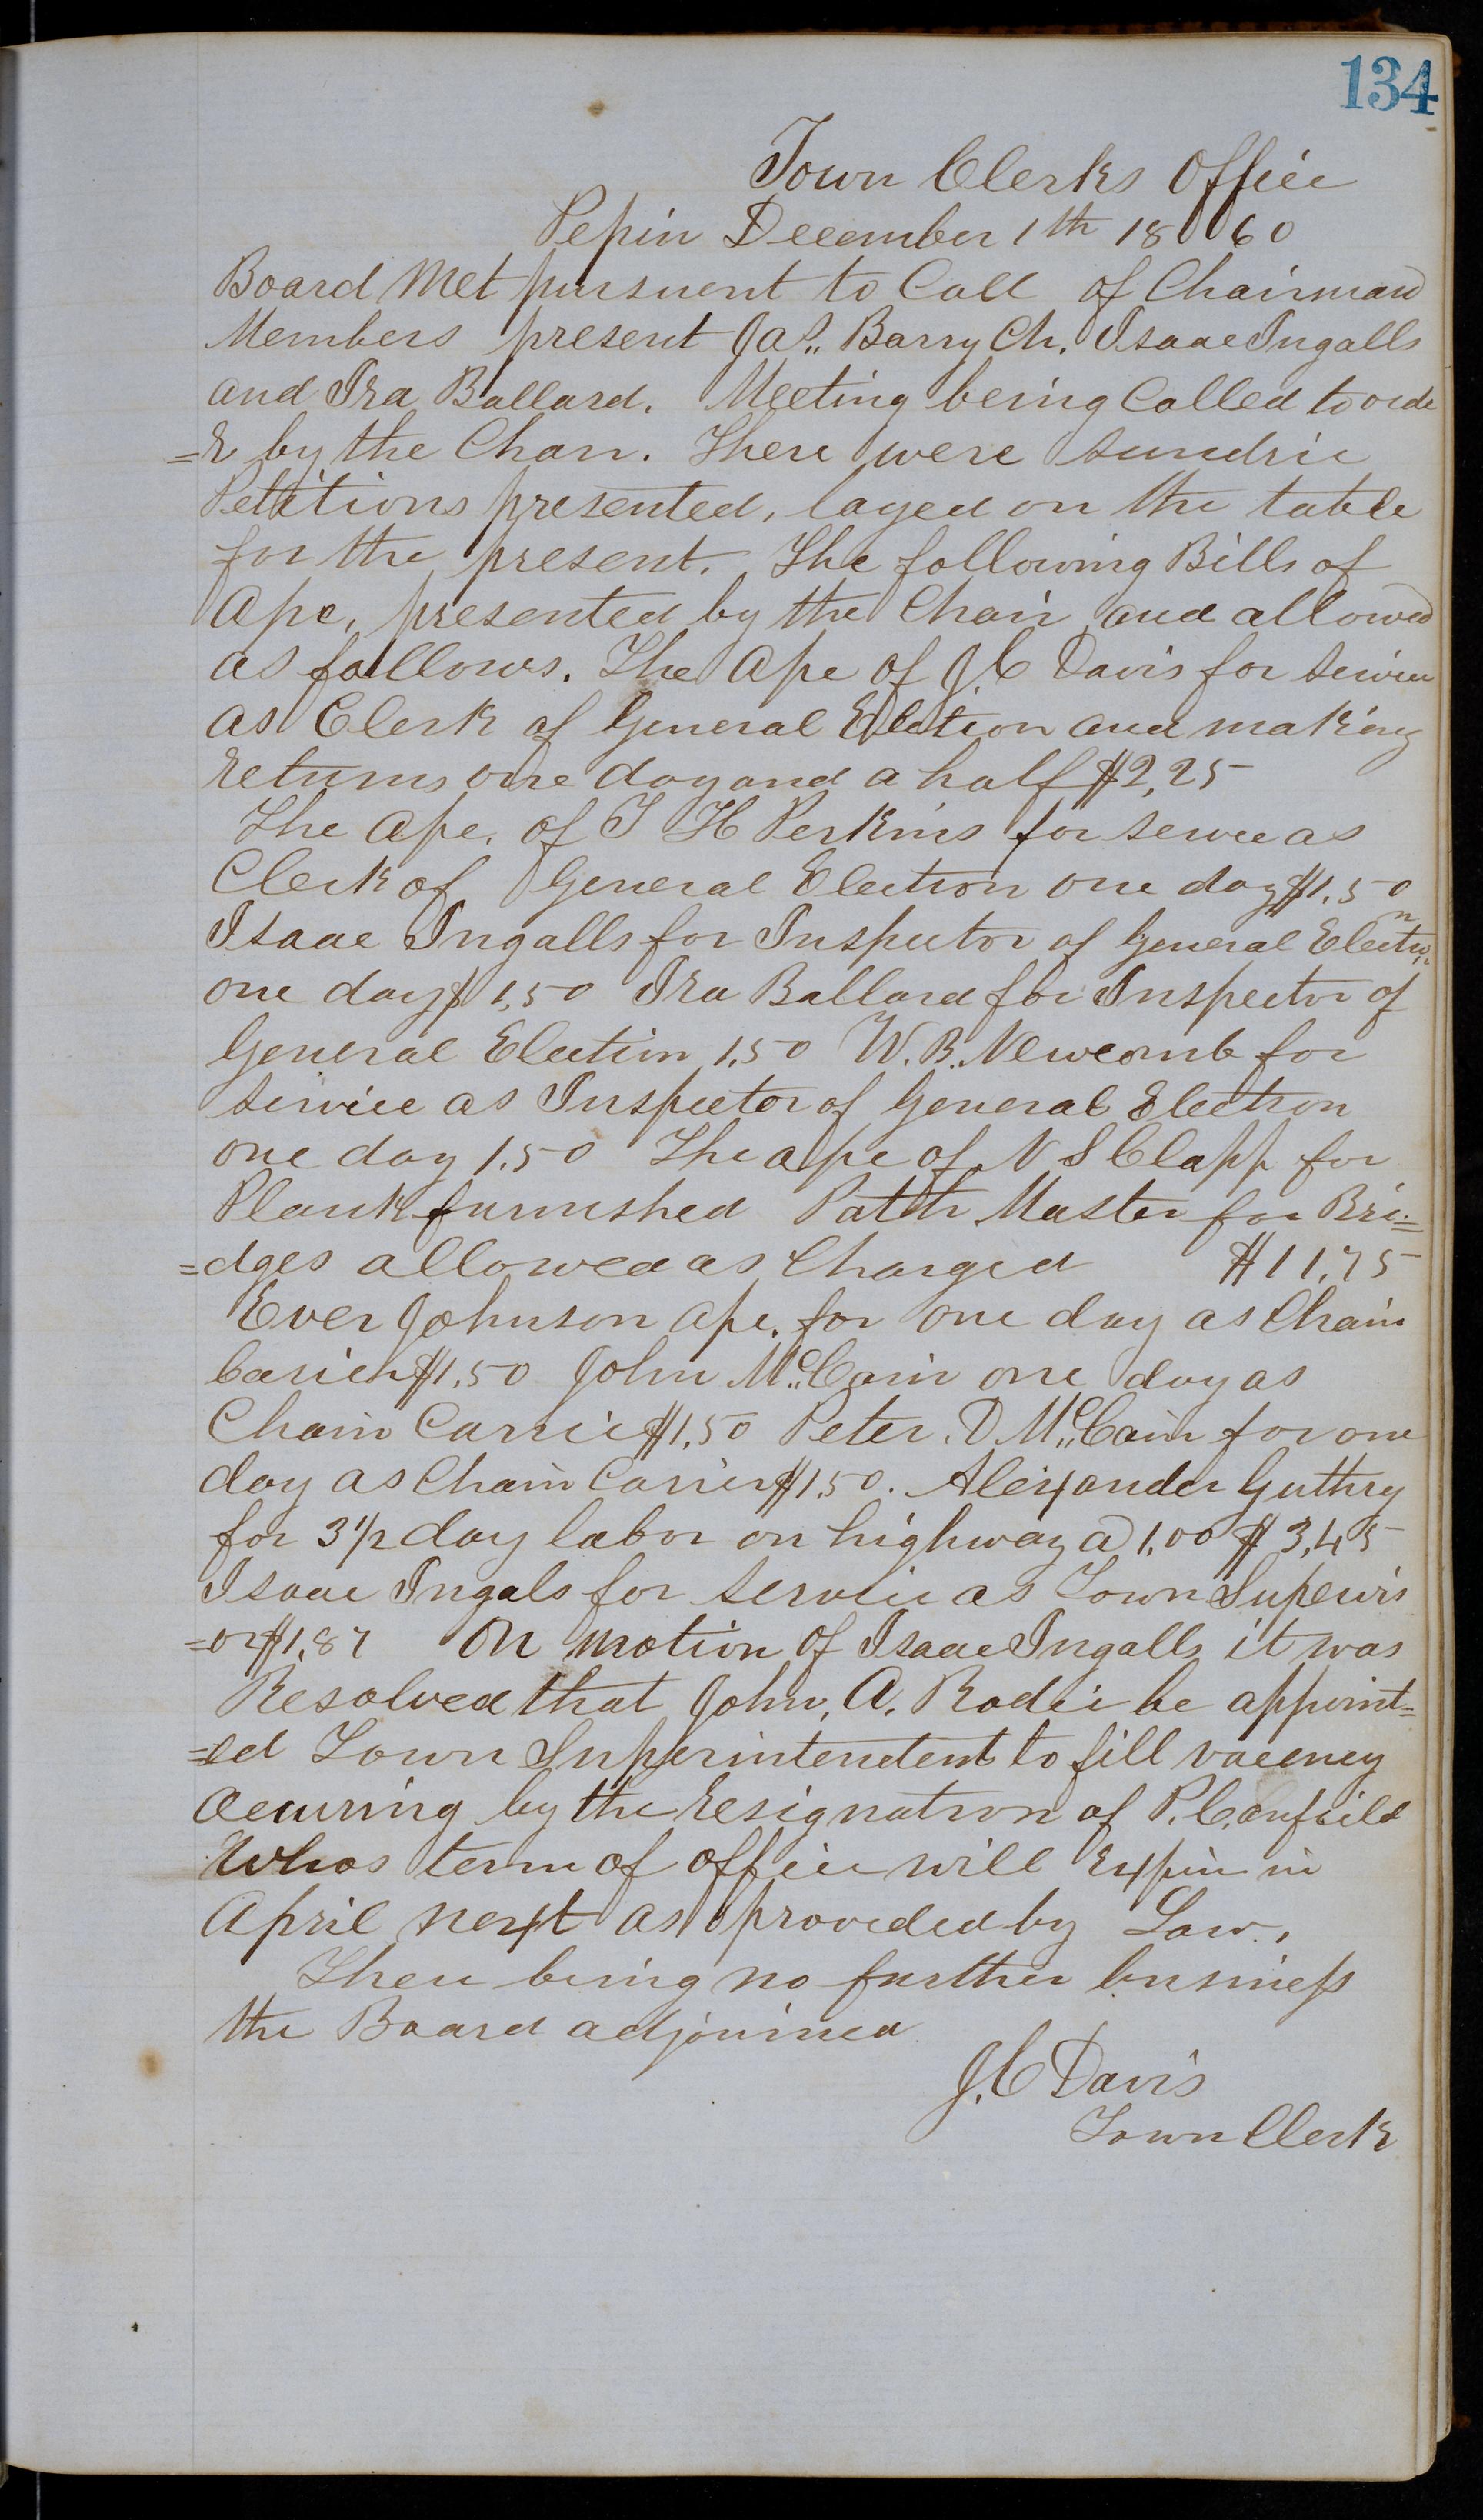 134
Town Clerks Office
Pepin December 1th 1860
Board Met pursuent to Call of Chairman
Members present Jas. Barry Ch. Isaac Ingalls
and Ira Ballard. Meeting being Called to orde
=r by the Chan. There were sundrie
Petitions presented, layed on the table
for the present. The following Bills of
Apc, presented by the Chair and allowed
as follows. The Apc of J.C Davis for Service
as Clerk of General Election and making
returns one day and a half $2,25
The Apc. of T H Perkins for servce as
Clerk of General Election one day $1,50
Isaac Ingalls for Inspector of General Election
one day $1,50 Ira Ballard for Inspector of
General Election 1,50 W. B. Newcomb for
Service as Inspector of General Election
one day 1.50 The apc of N S Clapp for
Plank furnished Path Master for Bri=
=dges allowed as Charged $11,75
Ever Johnson apc. for one day as Chain
Carier $1,50 John McCain one day as
Chain Carrie $1,50 Peter. D McCain for one
day as Chain Carrier $1,50. Alexander Guthry
for 3 1/2 day labor on highway a 1,00 $3,45
Isaac Ingals for Service as Town Supervis
=or $1,87 On motion of Isaac Ingalls it was
Resolved that John, A. Rodei be appoint=
=ed Town Superintendent to fill vacency
Accuring by the resignation of P. Canfield
Whos term of office will Expire in
April next as provided by Law.,
There being no further business
the Board adjourned
J.C Davis
Town Clerk